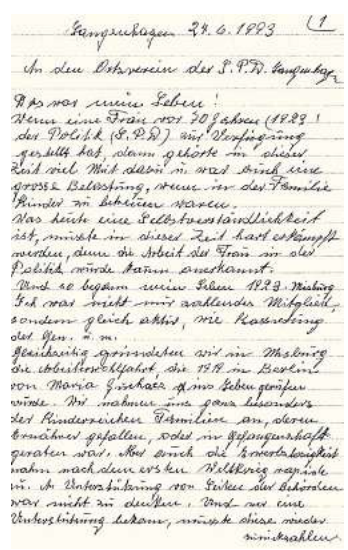 Langenhagen 24.6.1993 (1
An den Ortsverein der S.P.D. Langenhag.
Das war mein Leben!
Wenn eine Frau vor 70 Jahren (1923!
der Politik (S.P.D) zur Verfügung
gestellt hat, dann gehörte in dieser
Zeit viel Mut dazu u. war auch eine
grosse Belastung, wenn in der Familie
Kinder zu betreuen waren.
Was heute eine Selbstverständlichkeit
ist, musste in dieser Zeit hart erkämpft
werden, denn die Arbeit der Frau in der
Politik wurde kaum anerkannt.
Und so begann mein Leben 1923 Misburg
Ich war nicht nur zahlendes Mitglied,
sondern gleich aktiv, wie Kassierung
der Gen. u. m.
Gleichzeitig gründeten wir in Misburg
die Arbeiterwohlfahrt, die 1919 in Berlin
von Maria ins Leben gerufen
wurde. Wir nahmen uns ganz besonders
der Kinderreichen Familien an, deren
Ernährer gefallen, oder in Gefangenschaft
geraten war. Aber auch die Erwerbslosigkeit
nahm nach dem ersten Weltkrieg rapide
zu. A Unterstützung von Seiten der Behörden
war nicht zu denken. Und wer eine
Unterstützung bekam, musste diese wieder
zurückzahlen.